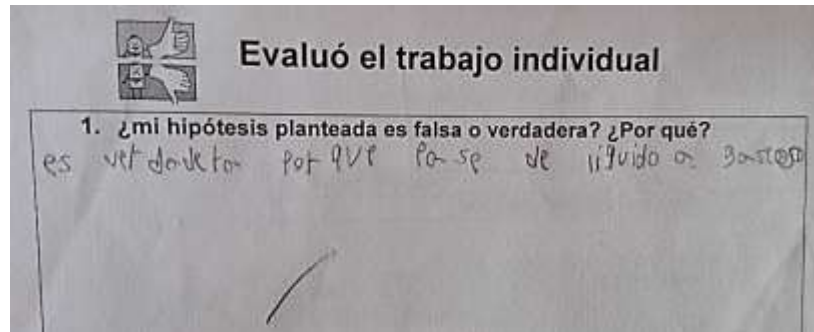 Evaluó el trabajo individual
1. ¿mi hipótesis planteada es falsa o verdadera? ¿Por qué?
es verdadera porque pase de liguido a